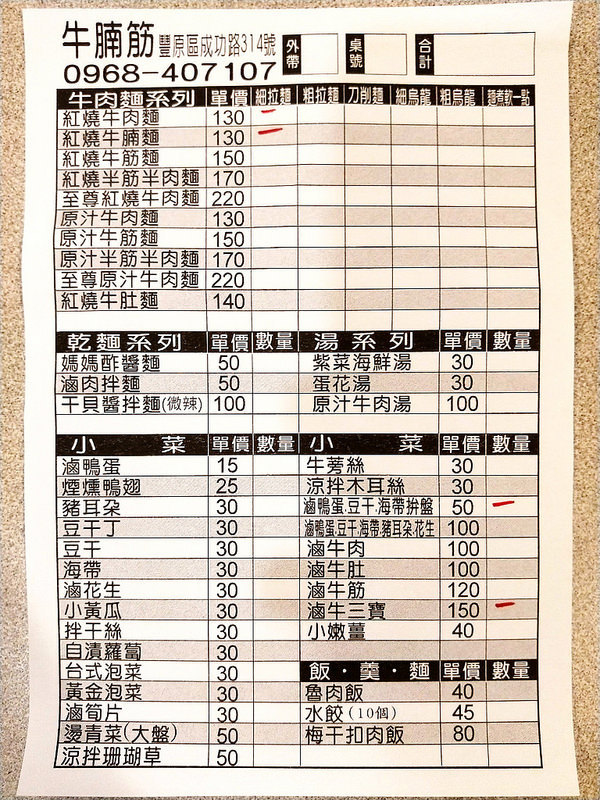 牛腩筋 豐原區成功路314號 外帶 桌號 合計
0968-407107
牛肉麵系列 單價 細拉麵 粗拉麵 刀削麵 細烏龍 粗烏龍 麵煮軟一點
紅燒牛肉麵 130
紅燒牛腩麵 130
紅燒牛筋麵 150
紅燒半筋半肉麵 170
至尊紅燒牛肉麵 220
原汁牛肉麵 130
原汁牛筋麵 150
原汁半筋半肉麵 170
至尊原汁牛肉麵 220
紅燒牛肚麵 140
乾麵系列 單價 數量 湯系列 單價 數量
媽媽酢醬麵 50 紫菜海鮮湯 30
滷肉拌麵 50 蛋花湯 30
干貝醬拌麵(微辣) 100 原汁牛肉湯 100
小菜 單價 數量 小菜 單價 數量
滷鴨蛋 15 牛蒡絲 30
煙燻鴨翅 25 涼拌木耳絲 30
豬耳朵 30 滷鴨蛋.豆干.海帶拚盤 50
豆干丁 30 滷鴨蛋.豆干.海帶.豬耳朵.花生 100
豆干 30 滷牛肉 100
海帶 30 滷牛肚 100
滷花生 30 滷牛筋 120
小黃瓜 30 滷牛三寶 150
拌干絲 30 小嫩薑 40
自漬蘿蔔 30
台式泡菜 30 飯・羹・麵 單價 數量
黃金泡菜 30 魯肉飯 40
滷筍片 30 水餃(10個) 45
燙青菜(大盤) 50 梅干扣肉飯 80
涼拌珊瑚草 50